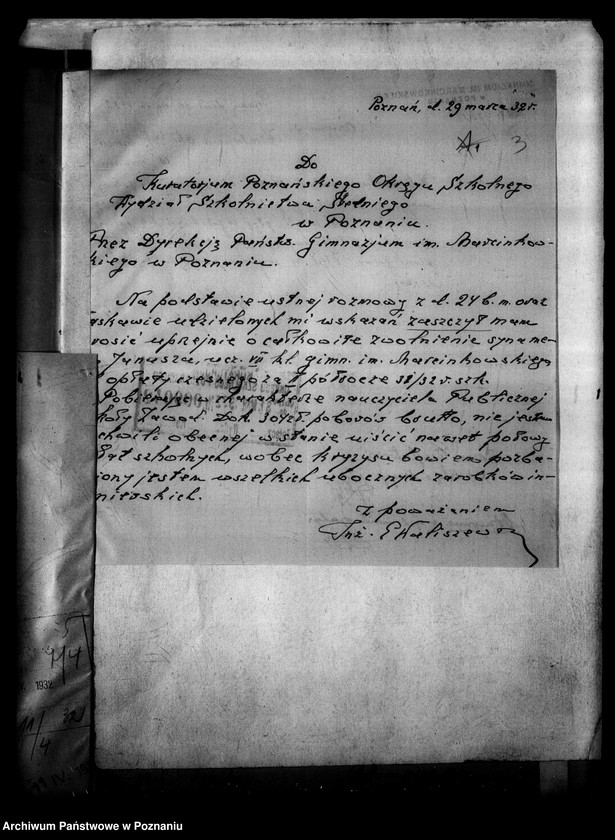 Poznań, d. 29 marca 32 r.
3
Do
Kuratorjum Poznańskiego Okręgu Szkolnego
Wydział Szkolnictwa Średniego
w Poznaniu.
Przez Dyrekcję Państw. Gimnazjum im. Marcinkow-
kiego w Poznaniu.
Na podstawie ustnej rozmowy z d. 24 b. m. oraz
łaskawie udzielonych mi wskazań zaszczyt mam
rosić uprzejmie o całkowite zwolnienie syna me-
Janusza, ucz. VII kl. gimn. im. Marcinkowskiego
opłaty czesnego za II półrocze 31/32 r. szk.
Pobierając w charakterze nauczyciela Publicznej
koły Zawod. Dok. poborów brutto, nie jestem
chwili obecnej w stanie uiścić nawet połowy
łat szkolnych, wobec kryzysu bowiem pozba-
iony jestem wszelkich ubocznych zarobków in-
nierskich.
Z poważaniem
Inż. E Kaliszew
5
4/4
1932
11/4
Archiwum Państwowe w Poznaniu